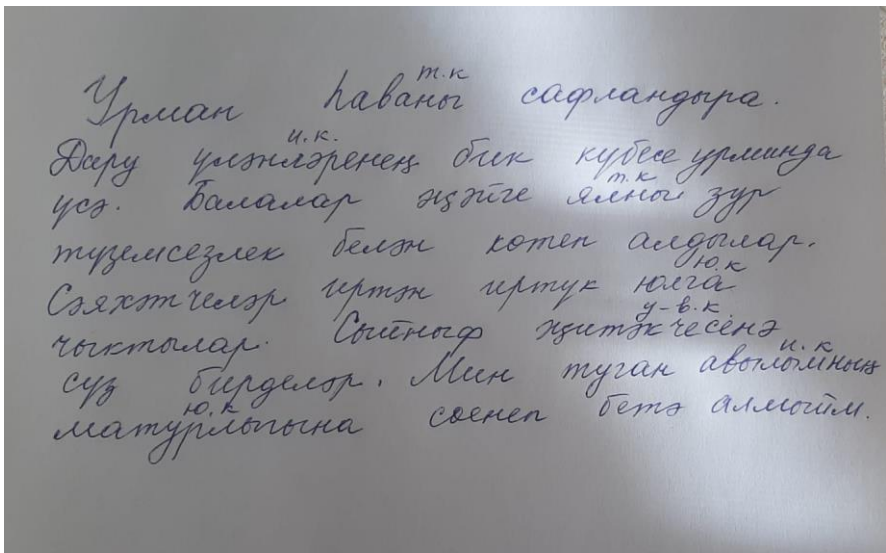 т.к
Урман һаваны сафландыра.
и.к.
Дару үләнләренең бик күбесе урманда
т.к
үсә. Балалар җәйге ялны зур
түземсезлек белән көтеп алдылар.
ю.к
Сәяхәтчеләр иртән иртүк юлга
у-в.к.
чыктылар. Сыйныф җитәкчесенә
и.к
сүз бирделәр. Мин туган авылымның
ю.к
матурлыгына сөенеп бетә алмыйм.